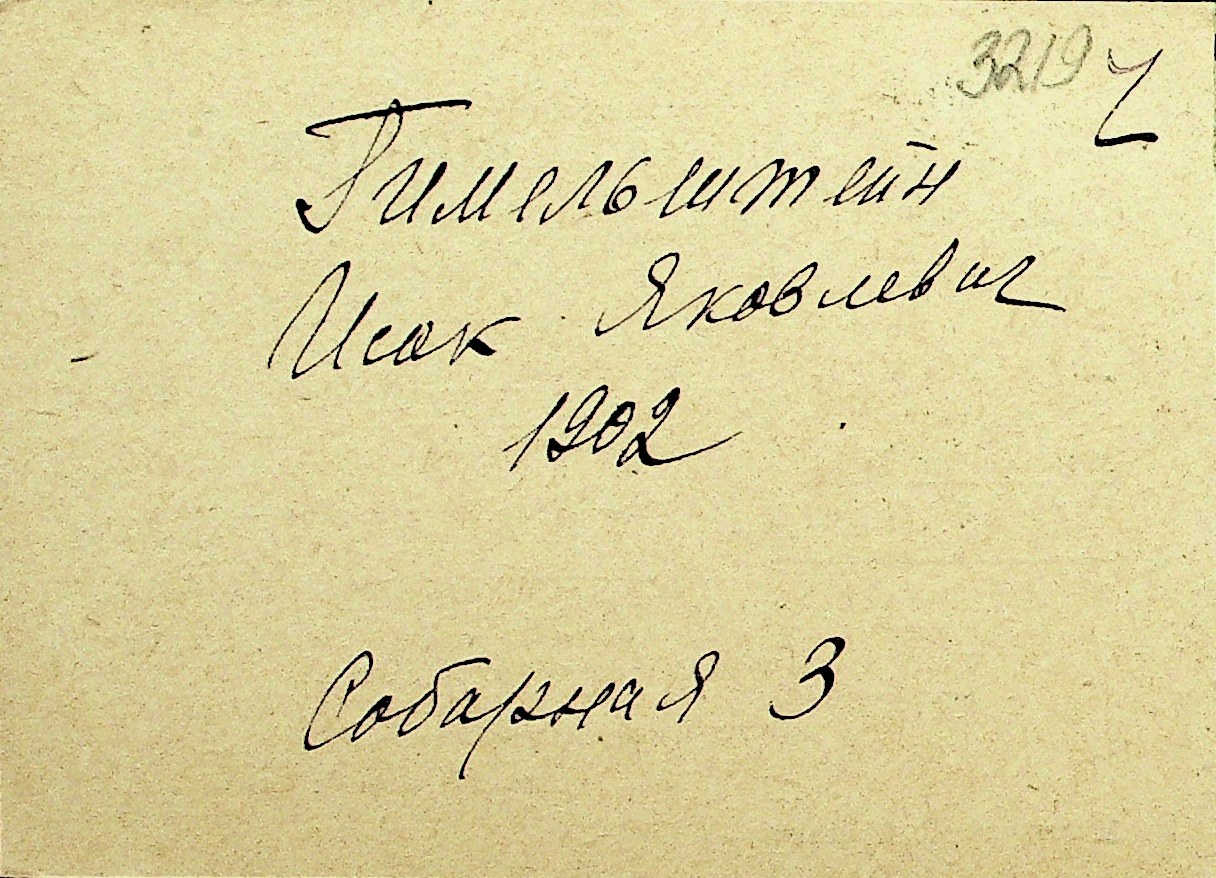 3219
Гимельштейн
Исак Яковлевич
1902
Собарная 3